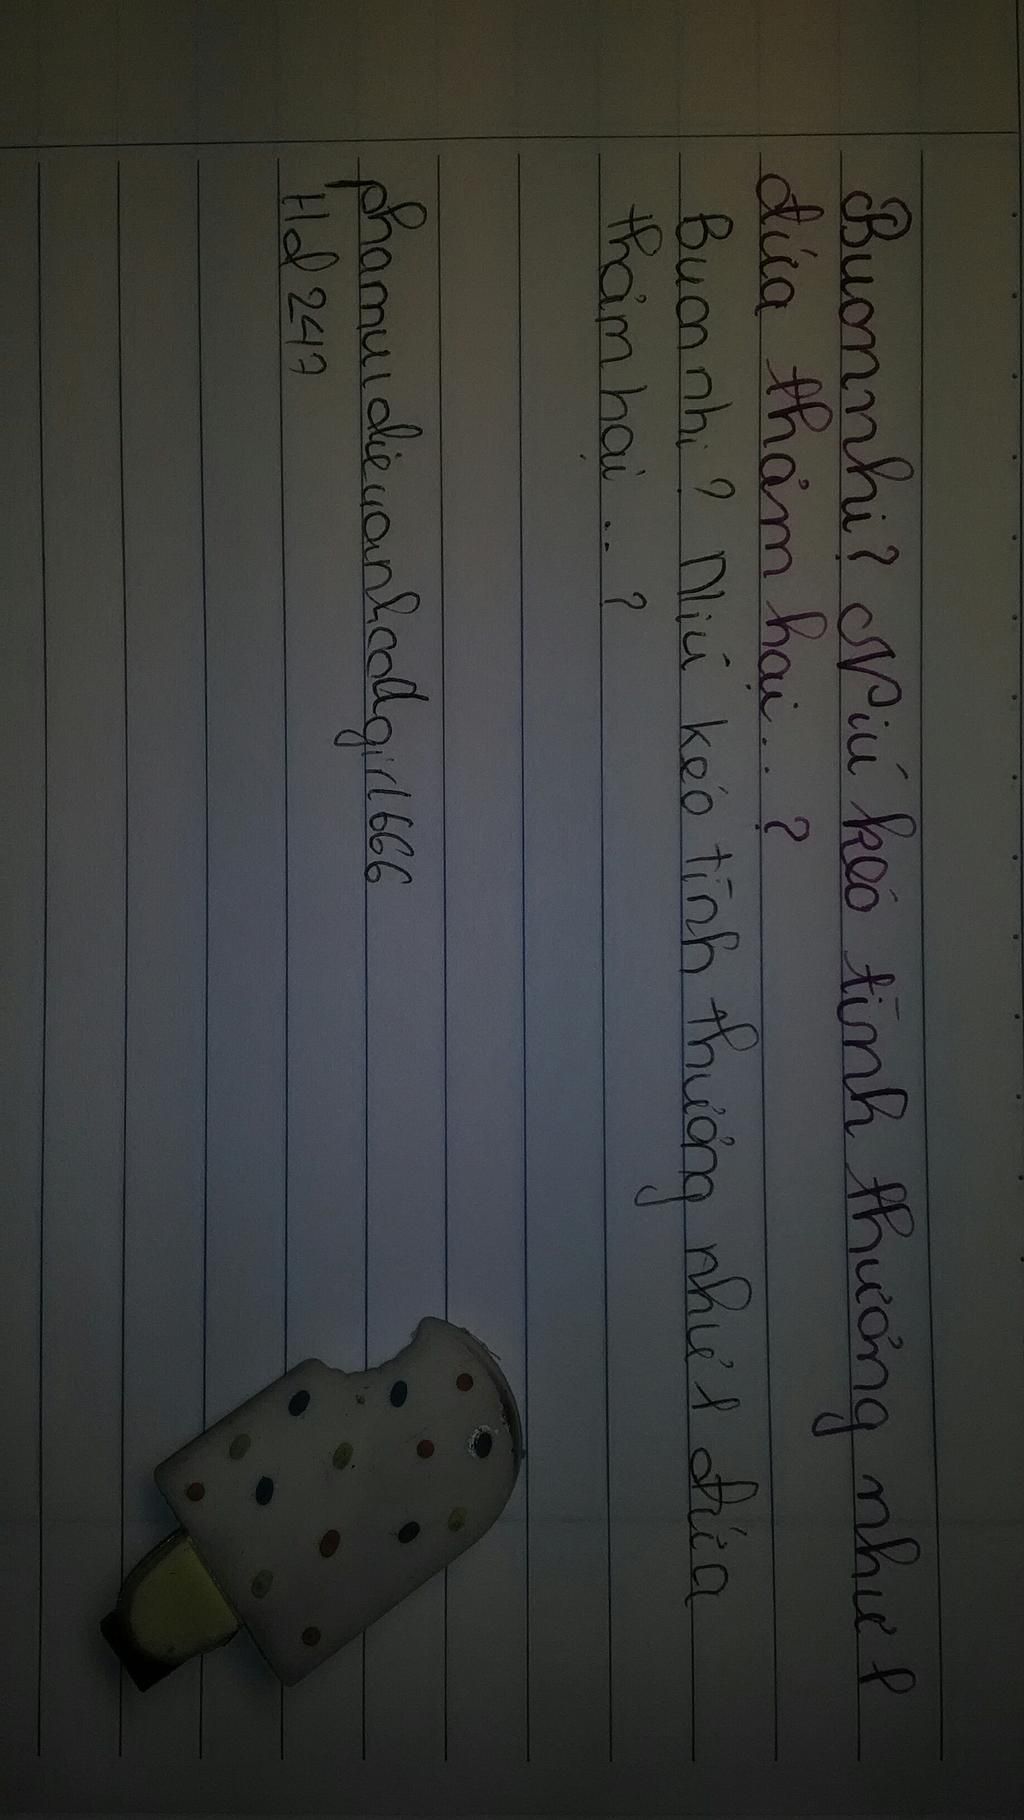 Buonnhi? Níu kéo tình thương như 1
đứa thảm hại... ?
Buonnhi? Níu kéo tình thương như 1 đứa
thảm hại... ?
phamuidieuanhcoldgirl666
Hd247